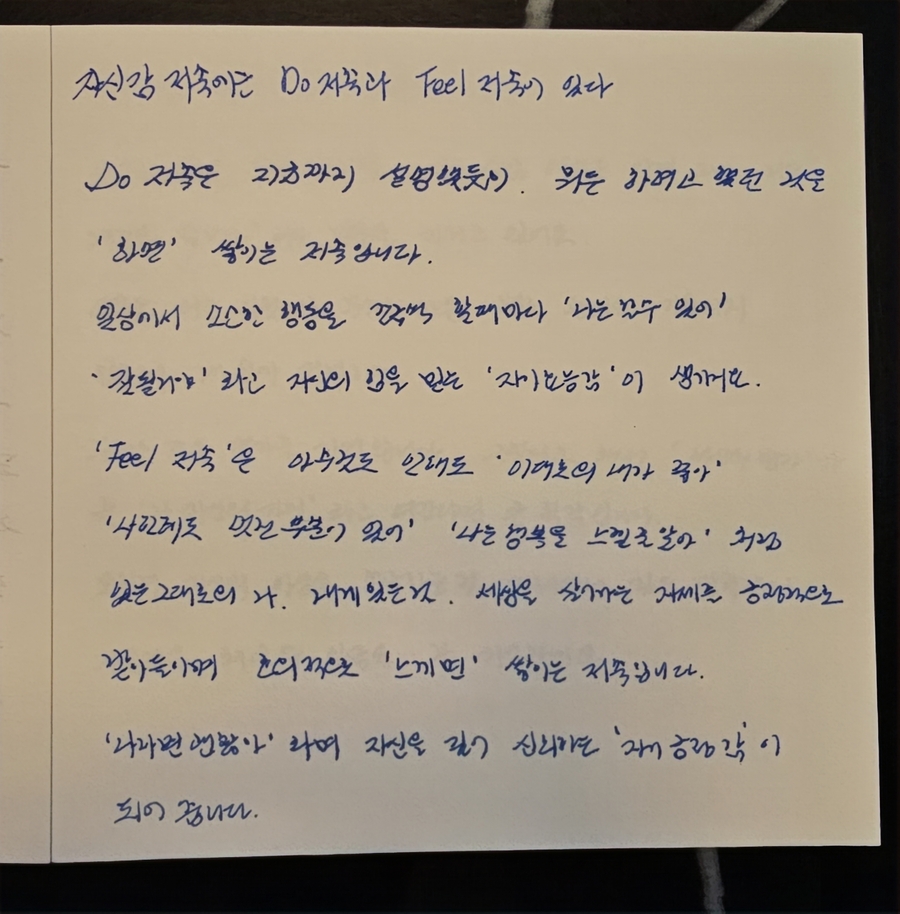 자신감 저축에는 Do 저축과 Feel 저축이 있다
Do 저축은 지금까지 설명했듯이. 뭐든 하려고 했던 것을
'하면' 쌓이는 저축입니다.
일상에서 소소한 행동을 꾸벅 할때마다 '나는 할수 있어'
'잘될거야' 라고 자신의 힘을 믿는 '자기효능감'이 생겨요.
'Feel 저축'은 아무것도 안해도 '이대로의 내가 좋아'
'나한테도 멋진 부분이 있어' '나는 행복을 느낄줄 알아' 처럼
있는그대로의 나. 내게 있는것. 세상을 살아가는 자세를 긍정적으로
받아들이며 호의적으로 '느끼면' 쌓이는 저축입니다.
'나라면 괜찮아' 라며 자신을 깊이 신뢰하는 '자기 긍정감'이
되어 줍니다.